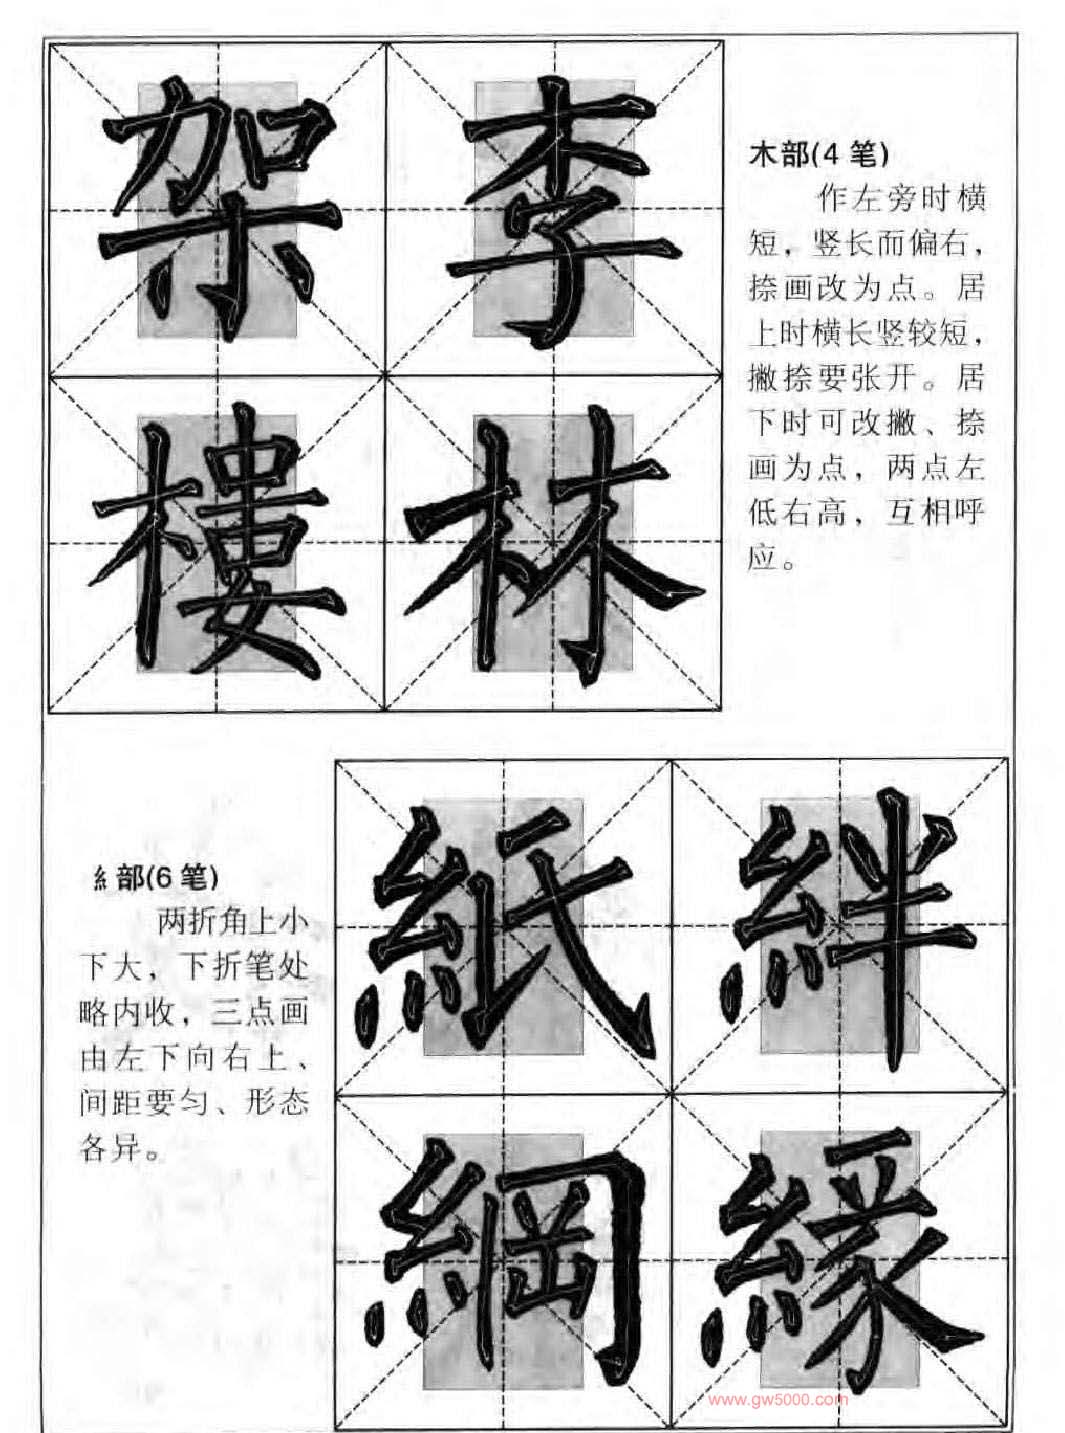 架李
樓林
木部(4 笔)
作左旁时横
短，竖长而偏右，
捺画改为点。居
上时横长竖较短，
撇捺要张开。居
下时可改撇、捺
画为点，两点左
低右高，互相呼
应。
糹部(6 笔)
两折角上小
下大，下折笔处
略内收，三点画
由左下向右上、
间距要匀、形态
各异。
紙絆
綱緣
www.gw5000.com